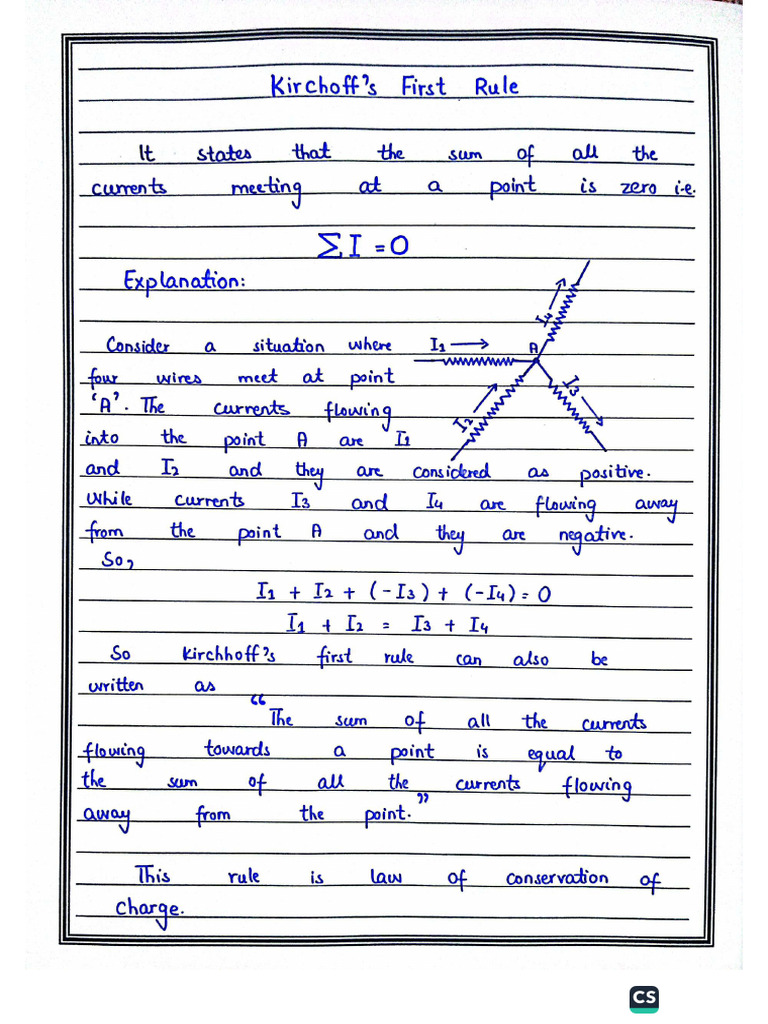 Kirchoff's First Rule
It states that the sum of all the
currents meeting at a point is zero i.e.
ΣI = 0
Explanation:
I4
Consider a situation where I1 A
four wires meet at point I3
'A'. The currents flowing I2
into the point A are I1
and I2 and they are considered as positive.
While currents I3 and I4 are flowing away
from the point A and they are negative.
So,
I1 + I2 + (-I3) + (-I4) = 0
I1 + I2 = I3 + I4
So Kirchhoff's first rule can also be
written as
"The sum of all the currents
flowing towards a point is equal to
the sum of all the currents flowing
away from the point."
This rule is law of conservation of
charge.
CS